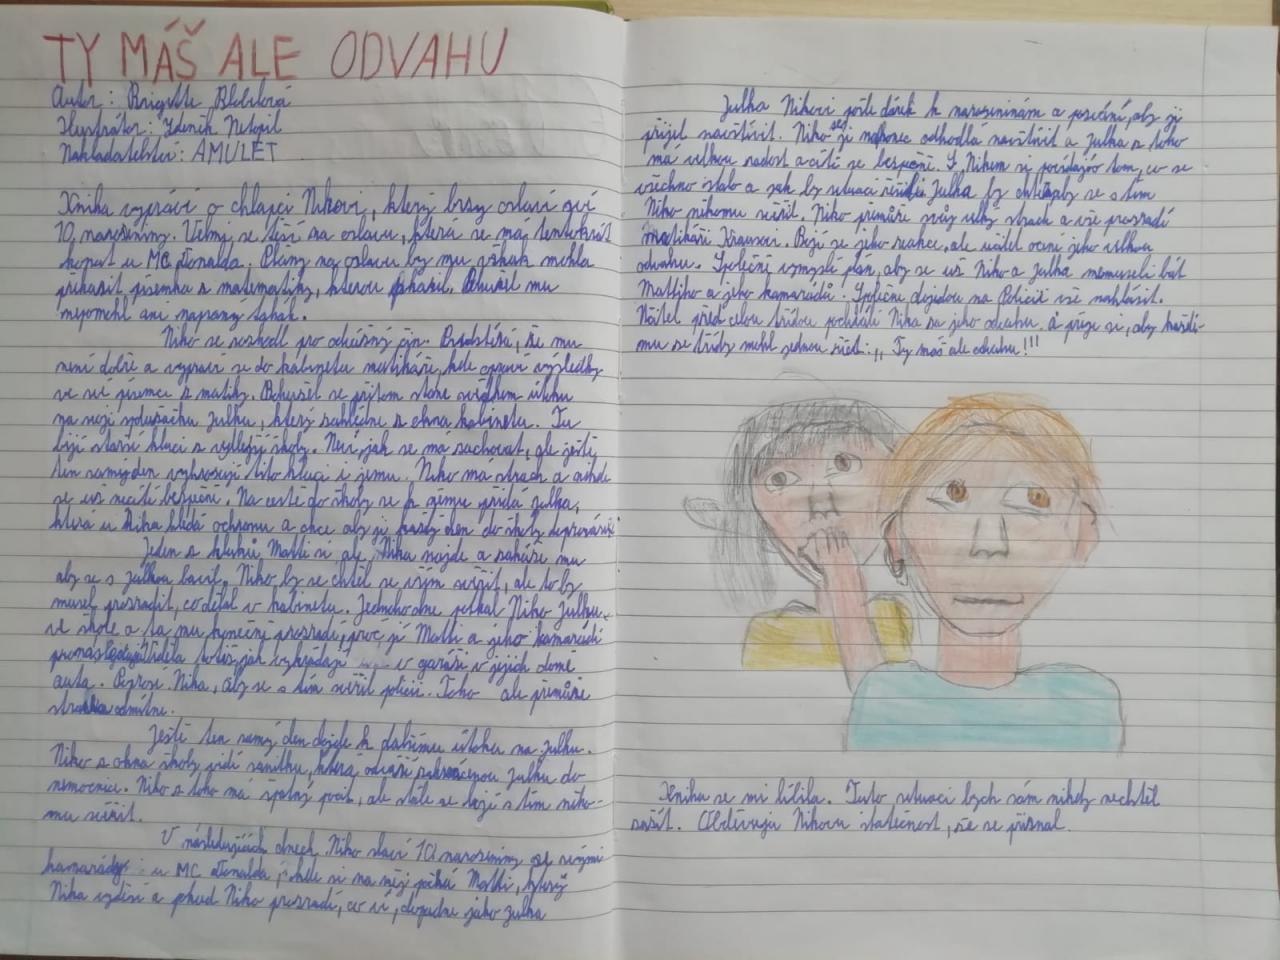 TY MÁŠ ALE ODVAHU
Autor: Brigitte Blobelová
Ilustrátor: Zdeněk Netopil
Nakladatelství: AMULET
Kniha vypráví o chlapci Nikovi, který brzy oslaví své
10. narozeniny. Velmi se těší na oslavu, která se má tentokrát
konat u MC Donalda. Plány na oslavu by mu však mohla
překazit písemka z matematiky, kterou zkazil. Bohužel mu
nepomohl ani napsaný tahák.
Niko se rozhodl pro odvážný čin. Předstírá, že mu
není dobře a vypraví se do kabinetu matikáře, kde opraví výsledky
ve své písemce z matiky. Bohužel se přitom stane svědkem útoku
na svoji spolužačku Julku, který zahlédne z okna kabinetu. Tu
bijí starší kluci z vyšší školy. Neví, jak se má zachovat, ale ještě
ten samý den vyhrožují tito kluci i jemu. Niko má strach a nikde
se už necítí bezpečně. Na cestě do školy se k němu přidá Julka,
která u Nika hledá ochranu a chce aby ji každý den do školy doprovázel.
Jeden z kluků Matti si ale Nika najde a zakáže mu
aby se s Julkou bavil. Niko by se chtěl se vším svěřit, ale to by
musel prozradit, co dělal v kabinetu. Jednoho dne potkal Niko Julku
ve škole a ta mu konečně prozradí, proč ji Matti a jeho kamarádi
pronásledují. Viděla totiž, jak vykrádají v garáži v jejich domě
auta. Poprosí Nika, aby se s tím svěřil policii. Toho ale přemůže
strach a odmítne.
Ještě ten samý den dojde k dalšímu útoku na Julku.
Niko z okna školy vidí sanitku, která odváží zakrvácenou Julku do
nemocnice. Niko z toho má špatný pocit, ale stále se bojí s tím někomu
svěřit.
V následujících dnech Niko slaví 10. narozeniny se svými
kamarády u MC Donalda, kde si na něj počká Matti, který
Nika vyděsí a pokud Niko prozradí, co ví, dopadne jako Julka
Julka Nikovi pošle dárek k narozeninám a pozvání, aby ji
přijel navštívit. Niko se ji nakonec odhodlá navštívit a Julka z toho
má velkou radost a cítí se bezpečně. S Nikem si povídají o tom, co se
všechno stalo a jak by situaci řešili. Julka by chtěla aby se s tím
Niko někomu svěřil. Niko přemůže svůj velký strach a vše prozradí
matikáři Krausovi. Bojí se jeho reakce, ale učitel ocení jeho velkou
odvahu. Společně vymyslí plán, aby se už Niko a Julka nemuseli bát
Mattiho a jeho kamarádů. Společně dojedou na Policii vše nahlásit.
Učitel před celou třídou pochválí Nika za jeho odvahu. A přeje si, aby každému
ze třídy mohl jednou říct: „Ty máš ale odvahu!!!
Kniha se mi líbila. Tuto situaci bych sám nikdy nechtěl
zažít. Obdivuji Nikovu statečnost, že se přiznal.